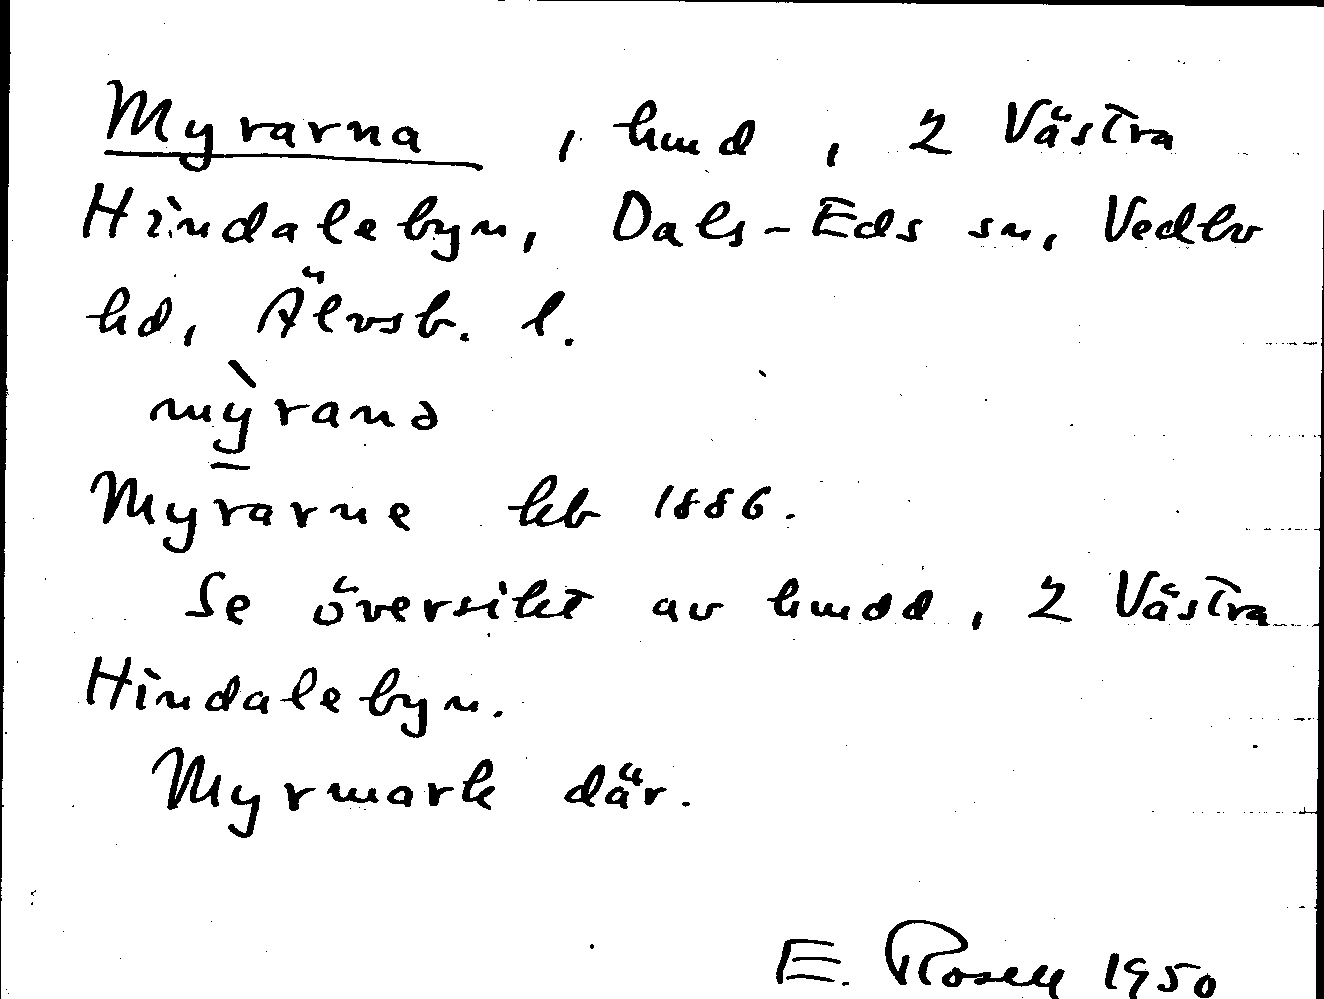 Myrarna, hmd, 2 Västra
Hindalebyn, Dals-Eds sn, Vedbo
hd, Älvsb. l.
mỳ̱ranə
Myrarne kb 1886.
Se översikt av hmdd, 2 Västra
Hindalebyn.
Myrmark där.
E. Rosell 1950